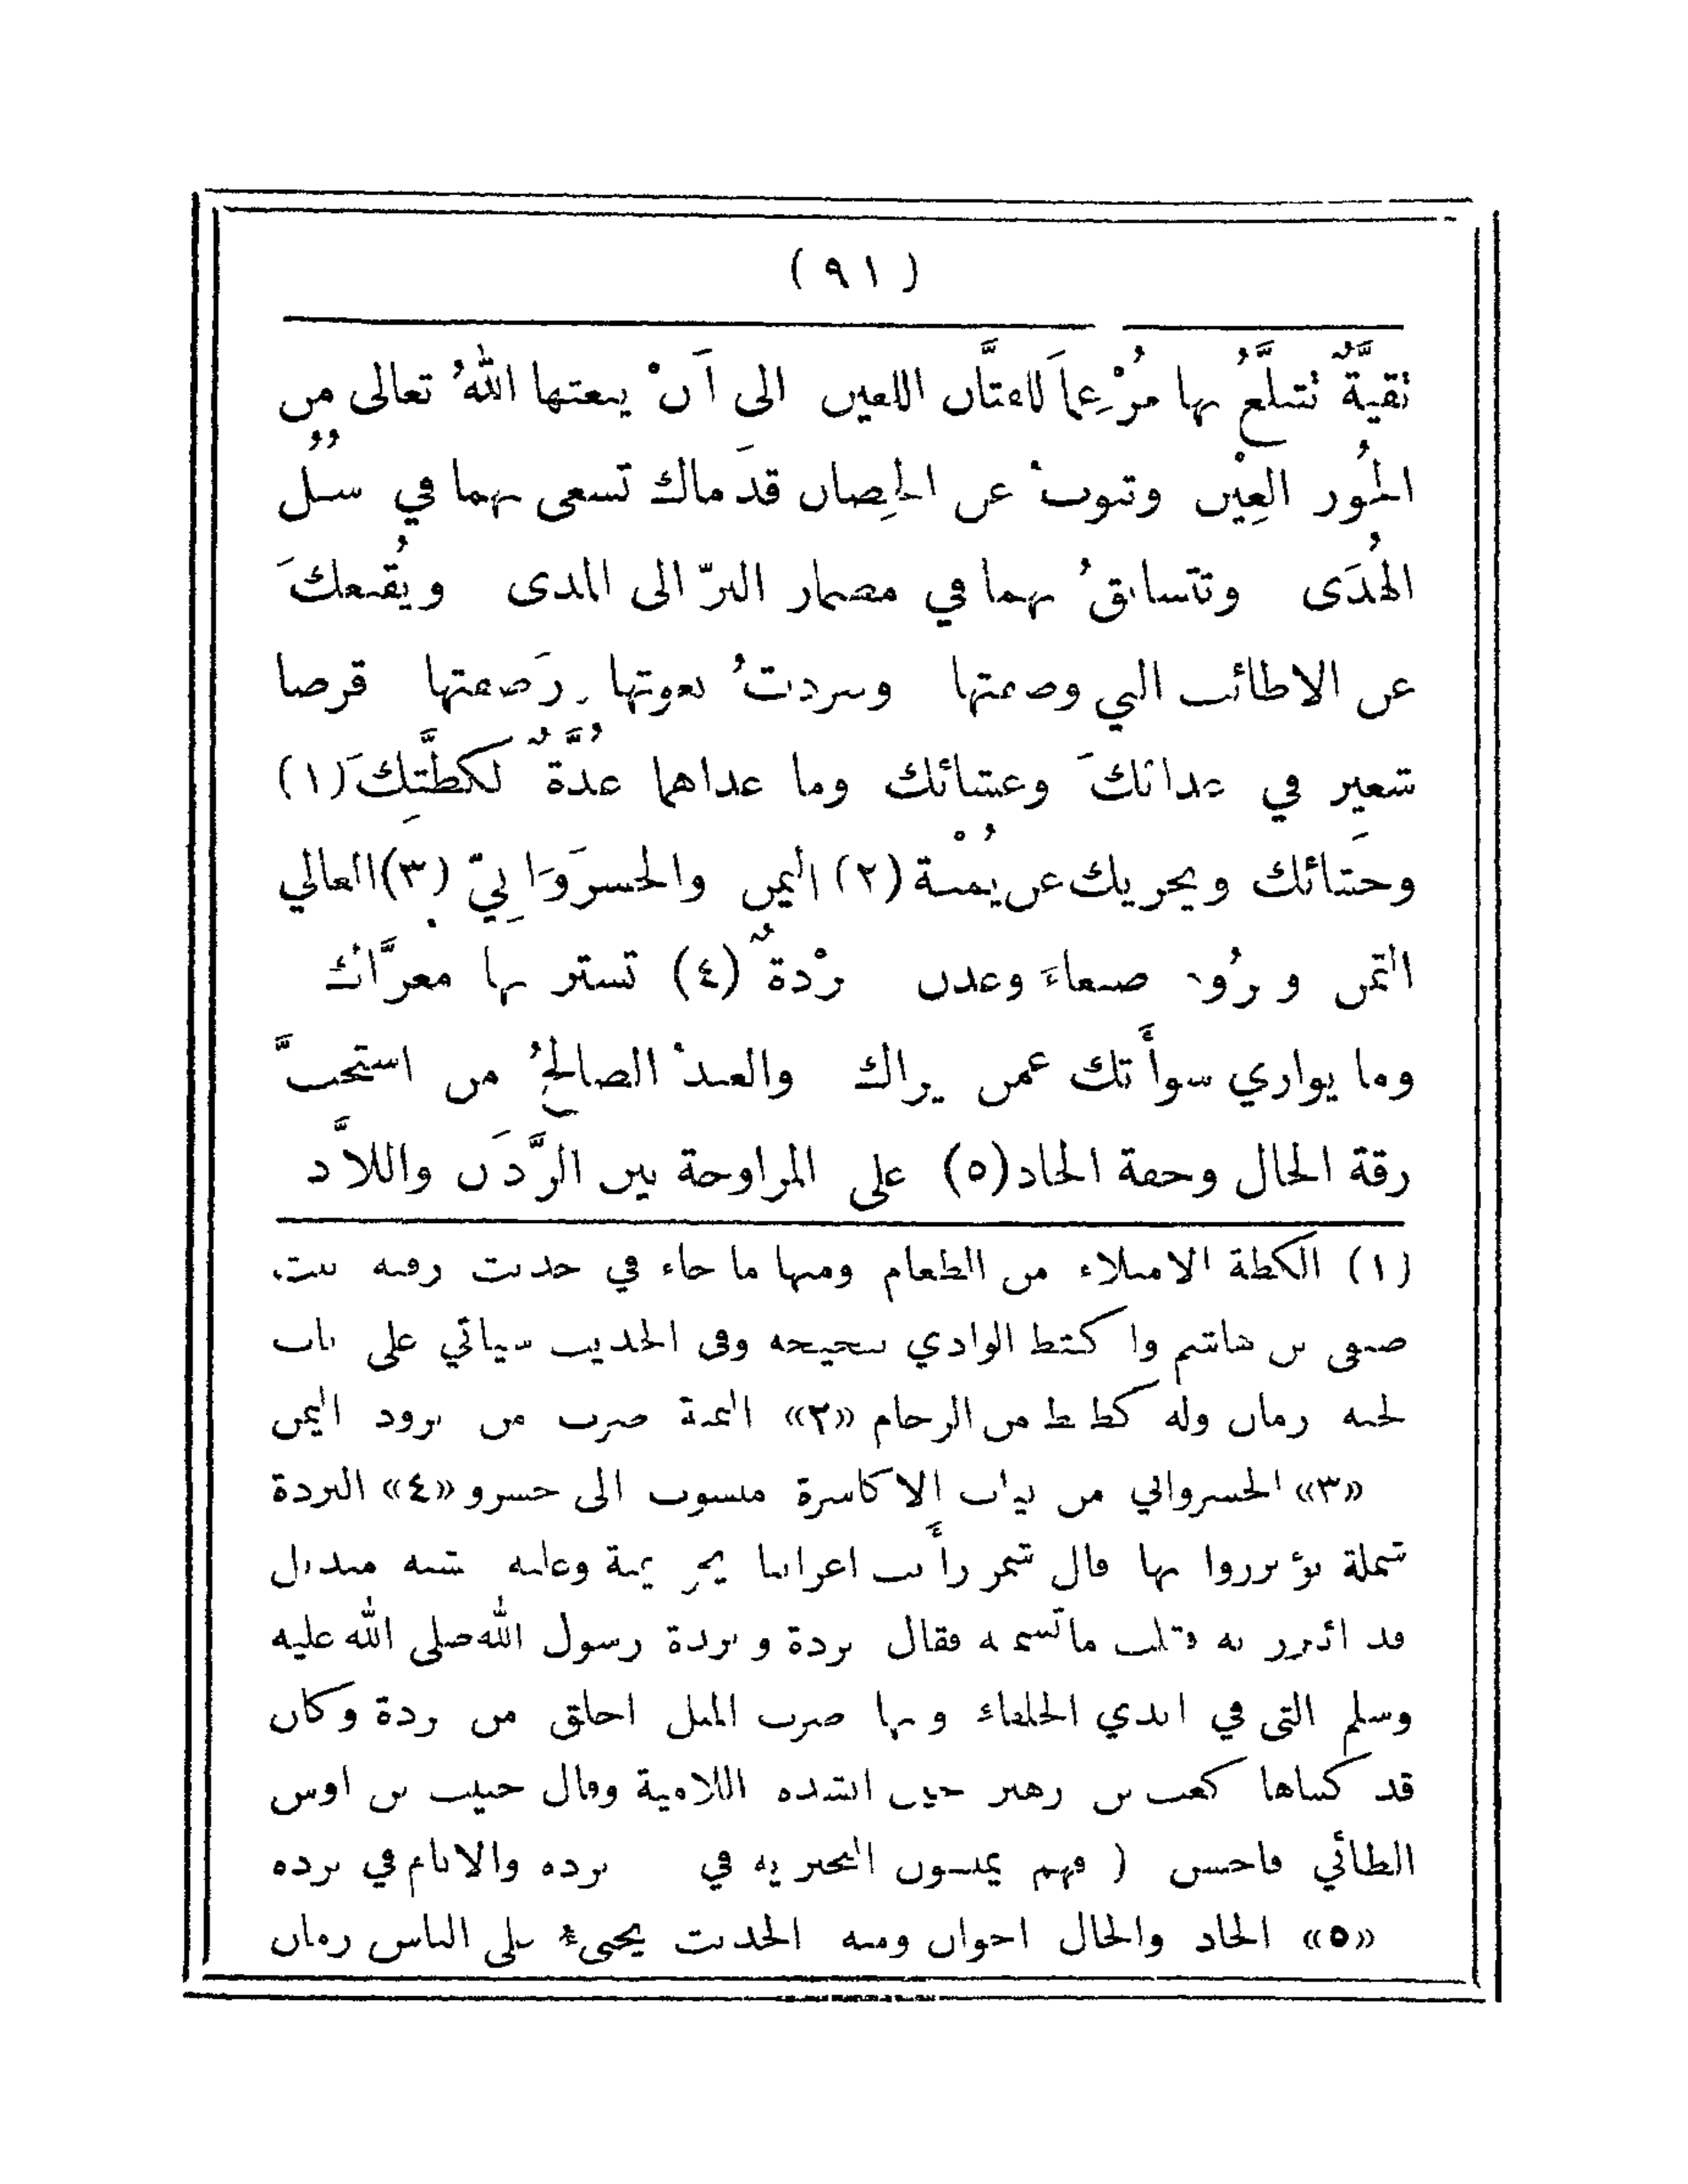 (٩١)
تقيَّةٌ تتبلَّغُ بها مُرْغِماً لافتَّان اللعين الى أَنْ يبعتها اللهُ تعالى من
الحُور العِيْن وتنوبُ عن الحِصان قدَماك تسعى بهما في سُبُل
الهُدَى وتتسابقُ بهما في مضمار البرّ الى المدى ويُقنعكَ
عن الاطائب التي وصفتها وسردتُ نعوتها ورَصفتها قرصا
شعير في غدائكَ وعشائك وما عداهما عُدَّةٌ لكظَّتِكَ (١)
وجَشائك ويجزيك عن يُمْنة (٢) اليمن والخسرَوَانِيّ (٣) الغالي
الثمن وبرُود صنعاءَ وعدن بُرْدةٌ (٤) تستتر بها معرَّاك
وما يواري سوأَتك عمن يراك والعبدُ الصالحُ من استحبَّ
رقة الحال وخفة الحاذ (٥) على المراوحة بين الرَّدَن واللاَّذ
(١) الكظة الامتلاء من الطعام ومنها ما جاء في حديث رقيقه بنت
صيفي بن هاشم واكتظ الوادي بثجيجه وفى الحديث سياتي على باب
الجنه زمان وله كظيظ من الزحام «٢» اليمنة ضرب من برود اليمن
«٣» الخسرواني من ثياب الاكاسرة منسوب الى خسرو «٤» البردة
شملة يؤتزروا بها قال شمر رأيت اعرابيا وعليه شبه منديل
قد ائتزر به فقلت ما تسميه فقال بردة وبردة رسول الله صلى الله عليه
وسلم التى في ايدي الخلفاء وبها ضرب المثل اخلق من بردة وكان
قد كساها كعب بن زهير حين انشده اللامية وقال حبيب بن اوس
الطائي فاحسن ( فهم يميسون البخترية في برده والانام في برده
«٥» الحاذ والحال اخوان ومنه الحديث يجيء على الناس زمان